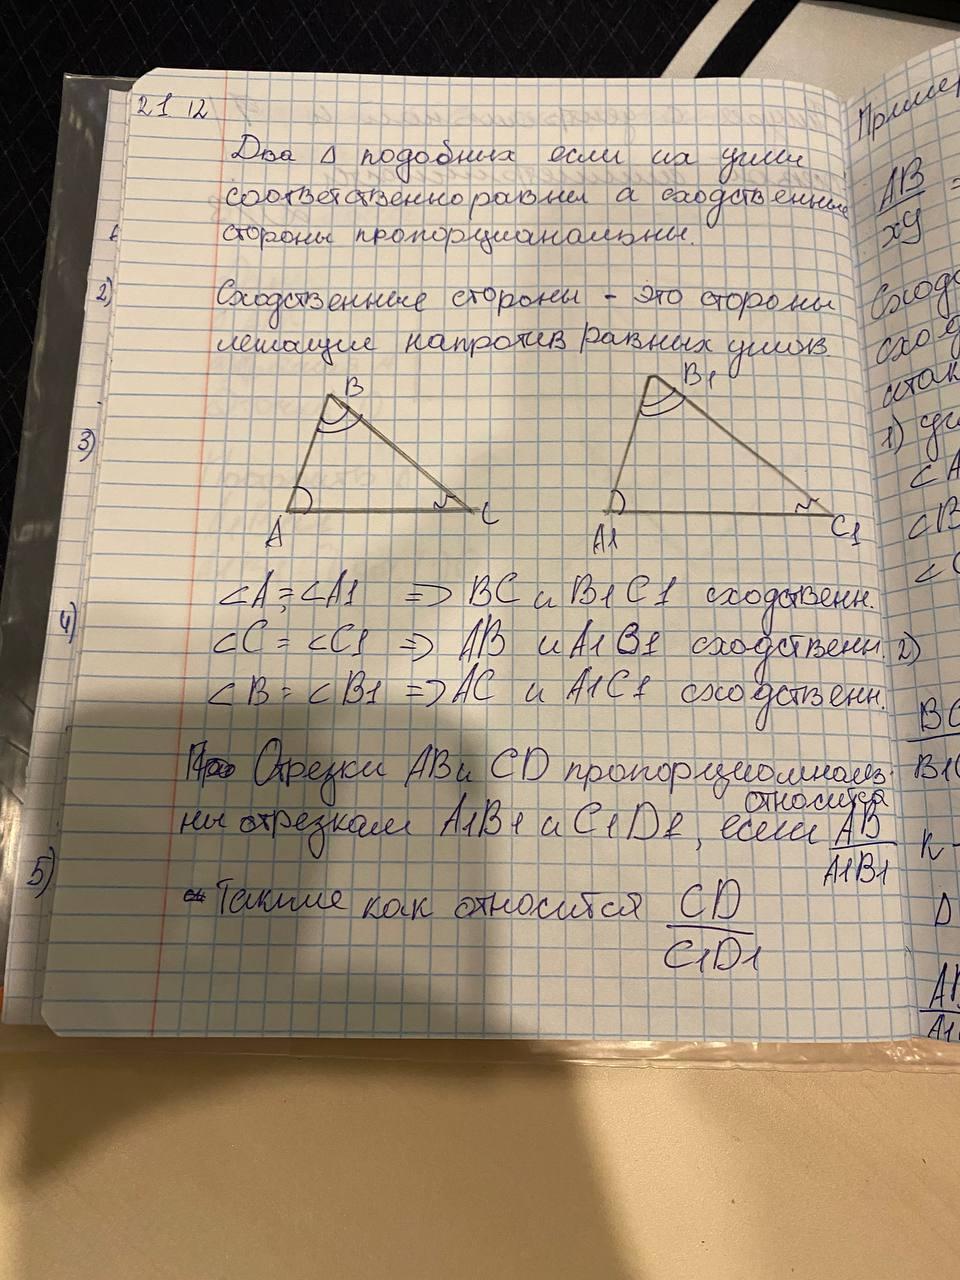 21 12
Два Δ подобных если их углы
соответственно равны а сходственные
стороны пропорциональны.
2) Сходственные стороны - это стороны
лежащие напротив равных углов.
3)
B B1
A C A1 C1
∠A = ∠A1 => BC и B1C1 сходственн.
4)
∠C = ∠C1 => AB и A1B1 сходственн.
∠B = ∠B1 => AC и A1C1 сходственн.
Отрезки AB и CD пропорциональ
ны отрезкам A1B1 и C1D1, если относится AB
A1B1
5)
Также как относится CD
C1D1
Пример
AB =
xy
Сходс
сход
1) уг
∠A
∠B
∠C
2)
BC
B1C
k -
Δ
AB
A1